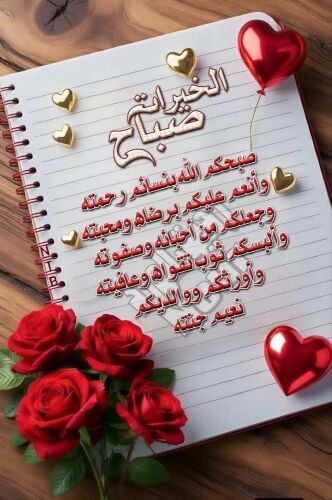 صباح
الخيرات
صبحكم الله بنسائم رحمته
وأنعم عليكم برضاه ومحبته
وجعلكم من أحبائه وصفوته
وألبسكم ثوب تقواه وعافيته
وأورثكم ووالديكم
نعيم جنته